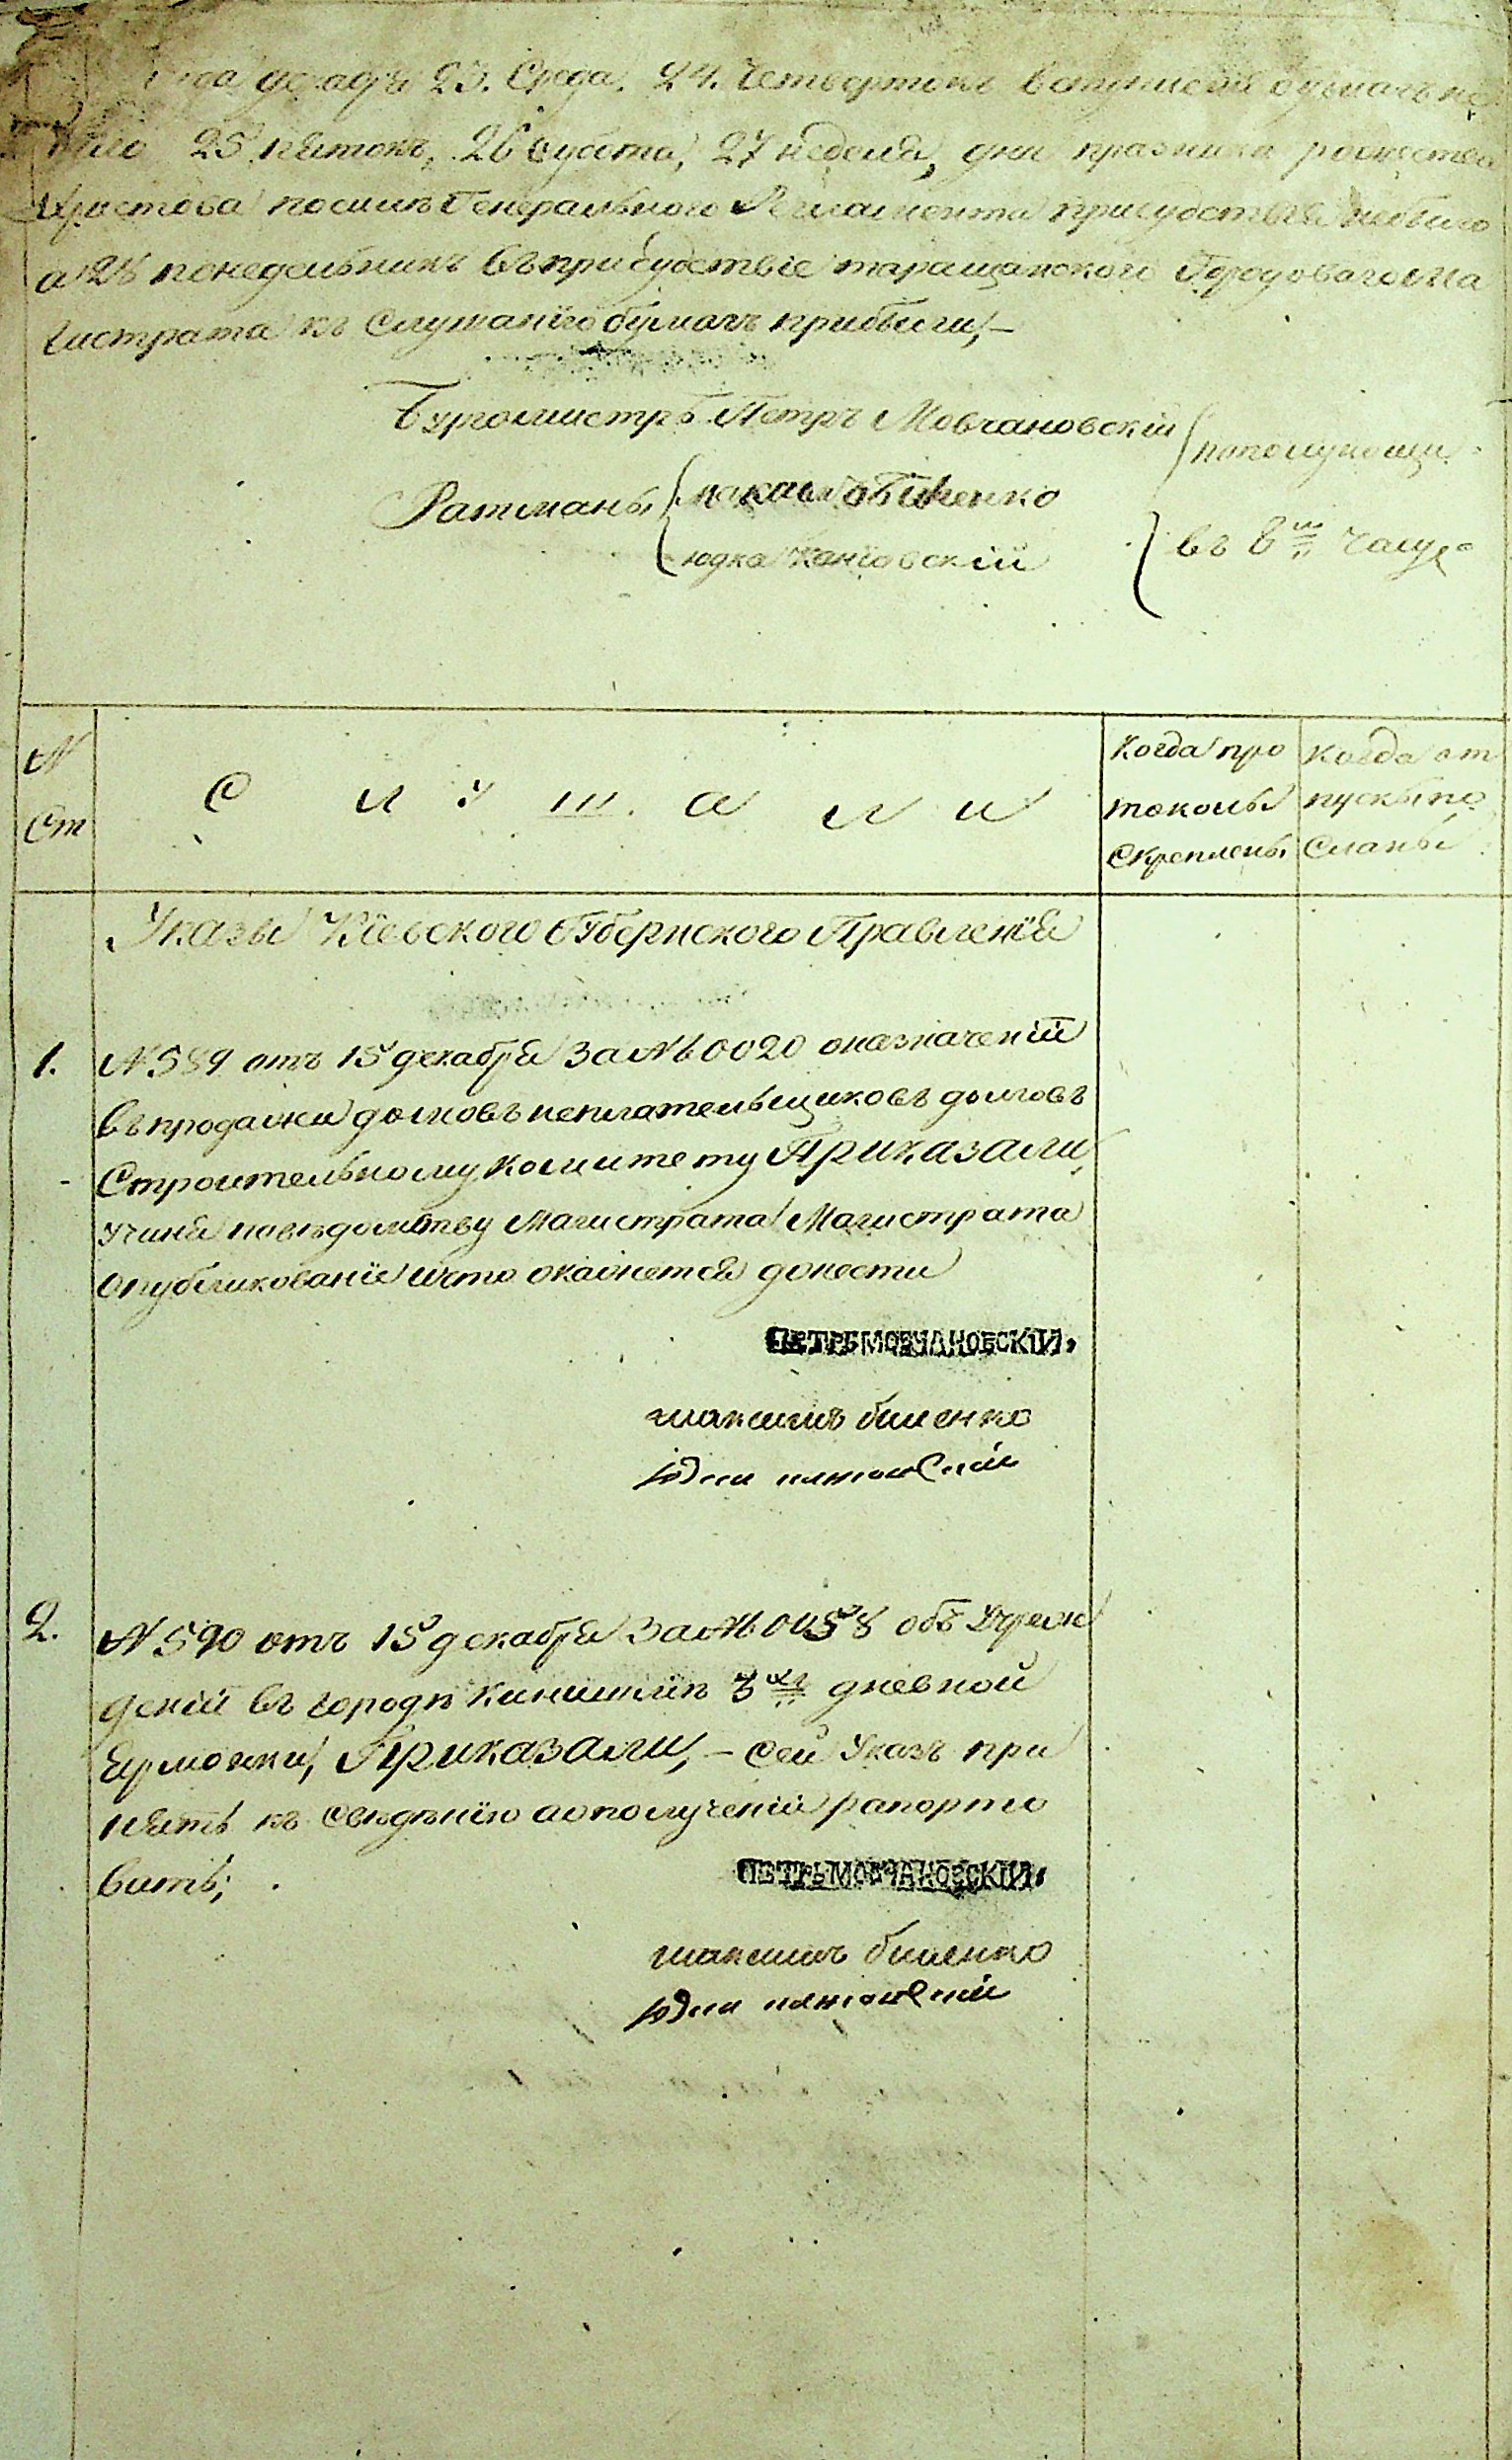 года декабря 23. Среда. 24. Четвертокъ вступленія бумагъ не
было 25 пятокъ, 26 субота, 27 неделя, дни празника рождества
Христова посилѣ Генеральнаго Регламента присудствія небыло
а 28 понедельникъ въ присудствіе таращанского Городоваго Ма
гистрата къ слушанію бумагъ прибыли, —
Бургомистръ Петръ Мовчановскій
пополуночи
Ратманы
Биленко
юдка Каневскій
въ 8м часу
N
Ст
С л у ш а л и
Когда про
токолы
Скреплены
Когда от
пуски по
сланы
Указы Кіевского Губернского Правленія
1. N 589 отъ 15 декабря За № 60020 оназначеніи
въ продажи домовъ неплательщиковъ долговъ
Строительному комитету Приказали,
учиня поведомству Магистрата Магистрата
опубликованіе и что окажется донести
ПЕТРЪ МОВЧАНОВСКІЙ,
максимъ биленко
2. N 590 отъ 15 декабря За № 60058 объ Учреж
деніи въ городѣ 3хъ дневной
Ярмонки, Приказали, — Сей Указъ при
нять къ Сведѣнію а ополученіи рапорто
вать;
ПЕТРЪ МОВЧАНОВСКІЙ,
максимъ биленко